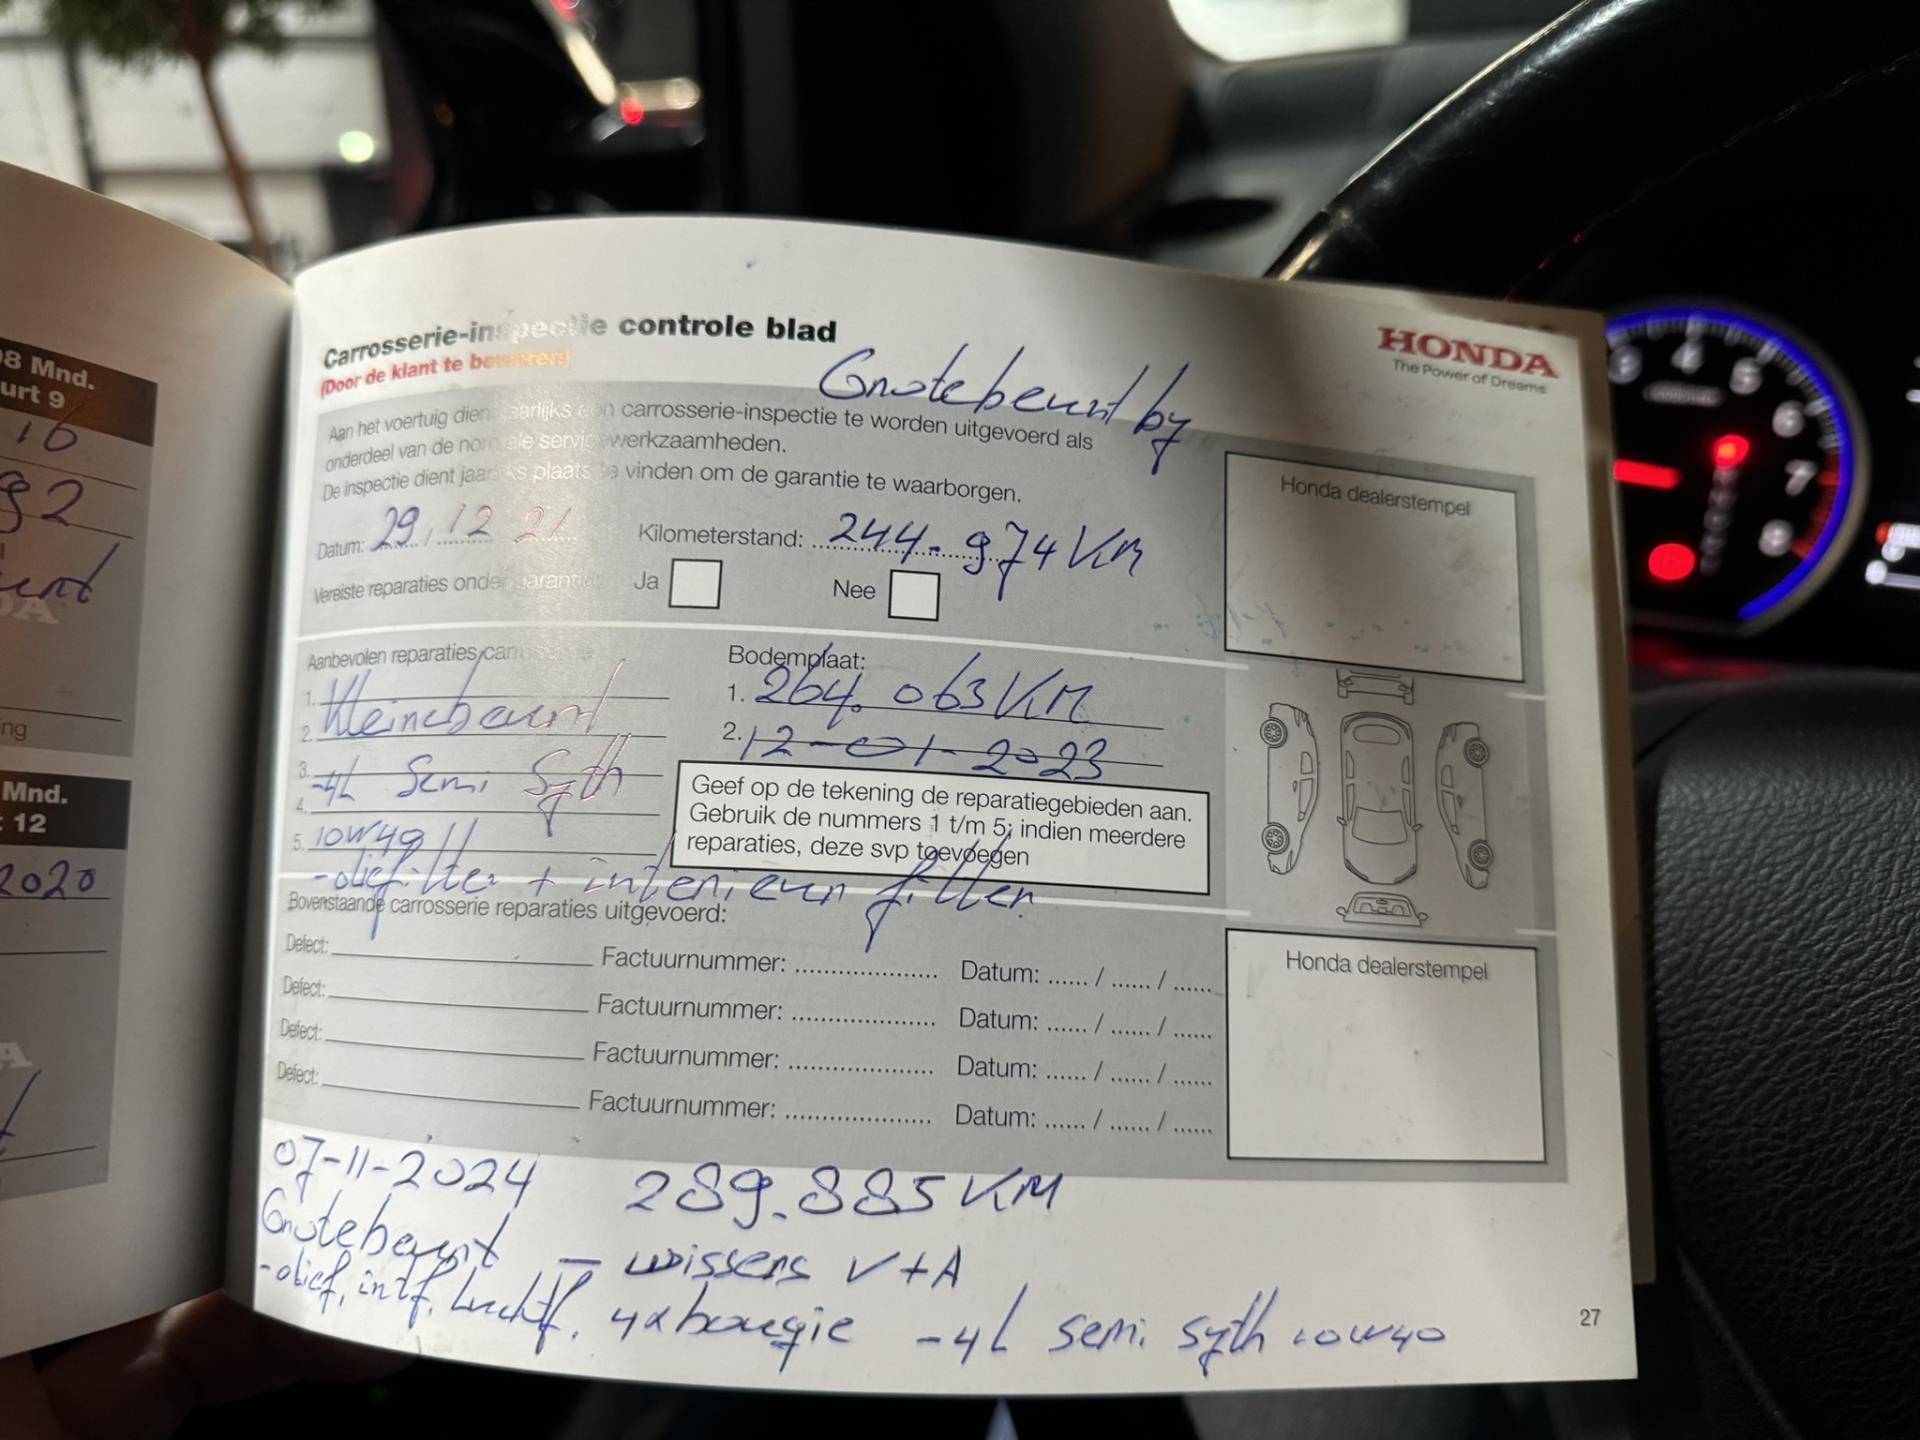 8 Mnd.
urt 9
16
92
Mnd.
: 12
2020
ng
Carrosserie-inspectie controle blad
(Door de klant te bewaren)
HONDA
The Power of Dreams
Grotebeurt by
Aan het voertuig dient jaarlijks een carrosserie-inspectie te worden uitgevoerd als
onderdeel van de normale servicewerkzaamheden.
De inspectie dient jaarlijks plaats te vinden om de garantie te waarborgen.
Datum: 29 / 12 21 Kilometerstand: 244.974 KM
Vereiste reparaties onder garantie Ja Nee
Honda dealerstempel
Aanbevolen reparaties carrosserie:
1.
2. Kleinebeurt
3. -4L Semi Syth
4.
5. 10W40
-oliefilter + interieur filter
Bodemplaat:
1. 264.063 KM
2. 12-01-2023
Geef op de tekening de reparatiegebieden aan.
Gebruik de nummers 1 t/m 5; indien meerdere
reparaties, deze svp toevoegen
Bovenstaande carrosserie reparaties uitgevoerd:
Defect: Factuurnummer: Datum: ...... / ...... / ......
Defect: Factuurnummer: Datum: ...... / ...... / ......
Defect: Factuurnummer: Datum: ...... / ...... / ......
Defect: Factuurnummer: Datum: ...... / ...... / ......
Honda dealerstempel
07-11-2024 289.885 KM
Grotebeurt - wissers V+A
-olief, intf, luchtf, 4x bougie -4L semi syth 10W40
27
3 4 5 6 7 8